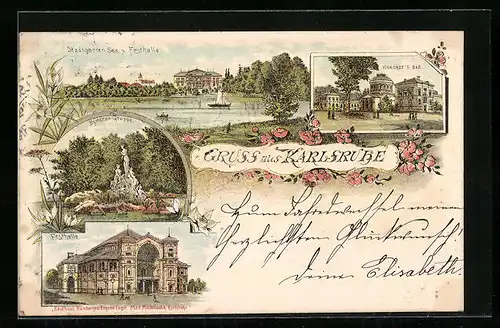 Stadtgarten See u. Festhalle
Vierordt's Bad
Gruppe
GRUSS aus KARLSRUHE
Festhalle
Zum Jahreswechsel meinen
herzlichsten Glückwunsch!
Deine Elisabeth.